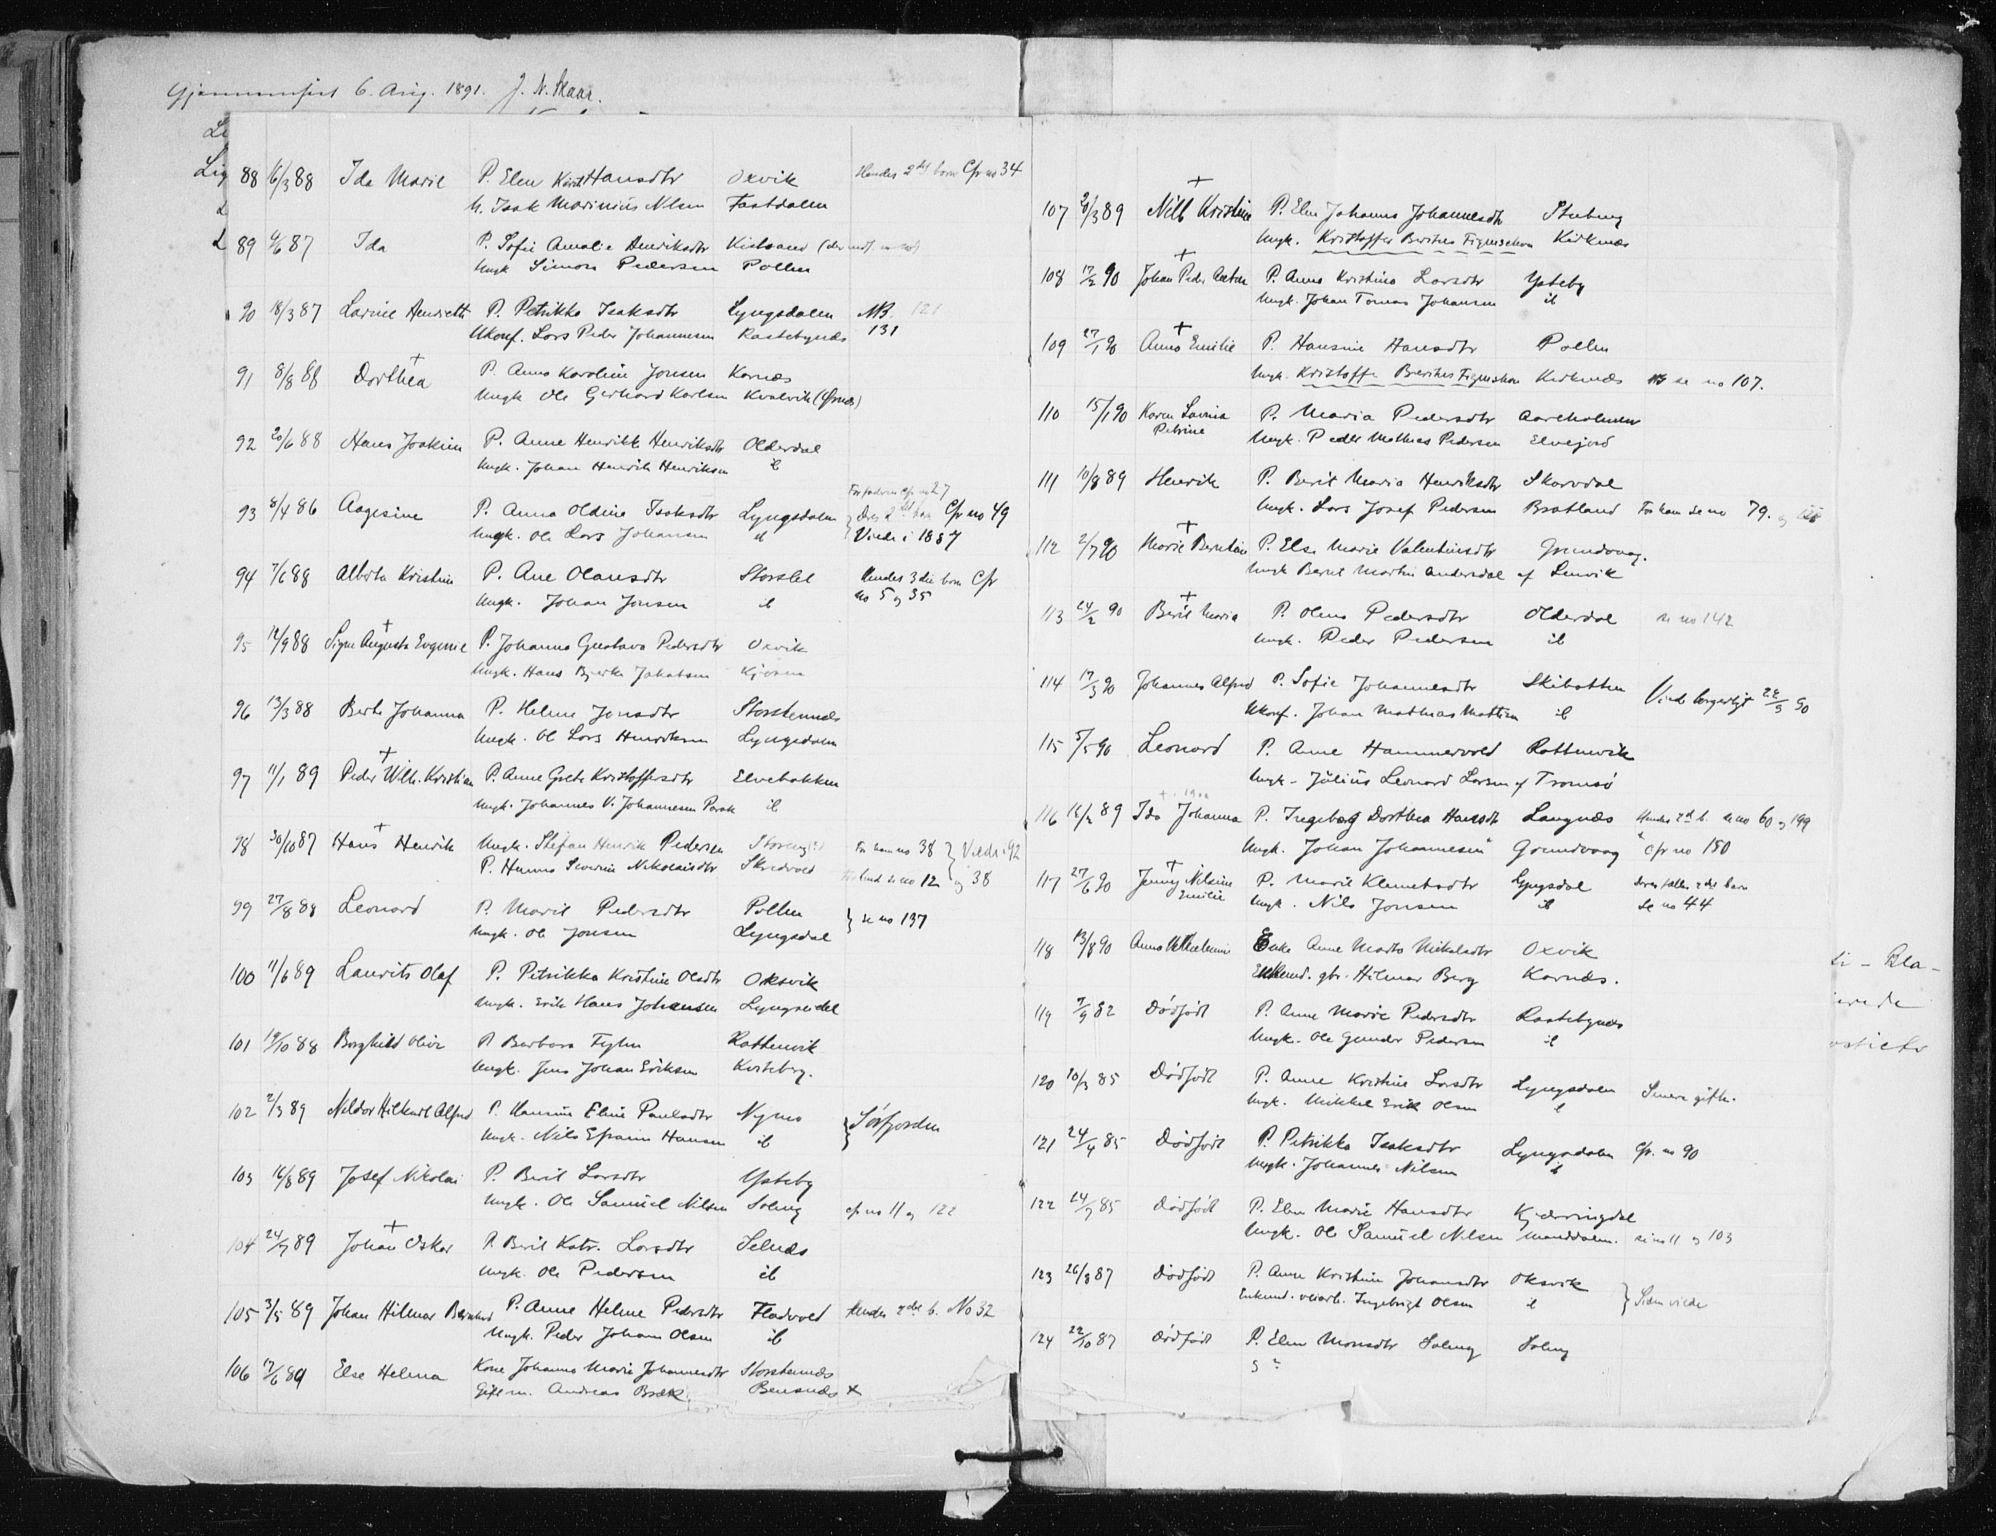 Gjennemset 6. Aug. 1891. J. N. Skaar.
Lig
88 6/3 88 Ida Marie P. Elen Kirst Hansdtr Oxvik Hendes 2det barn Cfr no 34
U. Isak Marinius Nilsen Fastdalen
89 4/6 87 Ida P. Sofie Amalie Henriksdtr Kistrand
Ungk Simon Pedersen Pollen
90 18/3 87 Lavine Henriette P. Petrikka Isaksdtr Lyngsdalen NB. 121
Ukonf. Lars Peder Johannesen Rastebynæs 131
91 8/8 88 Dorthea P. Anna Karoline Jonsen Karnæs
Ungk Ole Gerhard Karlsen Kvalvik
92 20/6 88 Hans Joakim P. Anne Henrikke Henriksdtr Olderdal
Ungk. Johan Henrik Henriksen il
For faderen cfr no 27
93 8/4 86 Aagesine P. Anna Oldine Isaksdtr Lyngsdalen Deres 2det barn Cfr no 49
Ungk. Ole Lars Johansen il Viede i 1887
94 7/6 88 Alberta Kristine P. Ane Olausdtr Storslet Hendes 3die barn Cfr
Ungk. Johan Jonsen il no 5 og 35
95 14/9 88 Signe Augusta Evgenie P. Johanna Gustava Pedersdtr Oxvik
Ungk. Hans Bjerke Jakobsen Kjosen
96 13/3 88 Berte Johanna P. Helene Jonsdtr Storstennæs
Ungk. Ol Lars Henriksen Lyngsdalen
97 11/1 89 Peder Wilh. Kristian P. Anne Grete Kristoffersdtr Elvebakken
Ungk. Johannes V. Johannesen Parak il
98 30/10 87 Hans Henrik Ungk. Stefan Henrik Pedersen For ham no 38 } Viede 92
P. Hanna Severine Nikolaisdtr Skredvold se no 12 og 38
99 27/8 88 Leonard P. Marit Pedersdtr Pollen } se no 137
Ungk. Ole Jonsen Lyngsdal
100 11/6 89 Laurits Olaf P. Petrikka Kristine Olsdtr Oksvik
Ungk. Erik Hans Johansen Lyngseidet
101 19/10 88 Borghild Olive P Barbara Figen Rottenvik
Ungk. Jens Johan Eriksen Kviteberg.
102 2/3 89 Nildor Hilbert Alfred P. Hansine Eline Paulsdtr Nymo } Sørfjorden
Ungk. Nils Efraim Hansen il
103 16/8 89 Josef Nikolai P. Berit Larsdtr Ysteby
Ungk. Ole Samuel Nilsen Soleng cfr no 11 og 122
104 24/7 89 Johan Oskar P. Berit Katr. Larsdtr Selnæs
Ungk. Ole Pedersen il
105 3/5 89 Johan Hilmar Bernhard P. Anne Helene Pedersdtr Fladvold Hendes 2det b. No 32
Ungk. Peder Johan Olsen il
106 17/6 89 Else Helena Kone Johanna Marie Johannesdtr Storstennæs
Gift m. Andreas Bræk. Bensnæs +
107 20/3 89 Nils Kristine P. Elen Johanna Johannesdtr Stubeng
Ungk. Kristoffer Berthes Figenschou Kirknæs
108 17/2 90 Johan Peder P. Anna Kristina Larsdtr Ysteby
Ungk. Johan Tomas Johansen il
109 27/1 90 Anna Emilie P. Hansine Hansdtr Pollen
Ungk. Kristoffer Berthes Figenschou Kirknæs se no 107.
110 15/1 90 Karen Lavina P. Maria Pedersdtr Aarøholmen
Petrine Ungk. Peder Mathias Pedersen Elvejord
111 10/8 89 Henrik P. Berit Maria Henriksdtr Skarvdal
Ungk. Lars Josef Pedersen Bratland For ham se no 79. og
112 2/7 90 Marie Berntine P. Else Marie Valentinsdtr Grundvaag.
Ungk Bernt Martin Andersdal af Lenvik
113 24/2 90 Berit Maria P. Olena Pedersdtr Olderdal se no 142
Ungk. Peder Pedersen il
114 17/3 90 Johannes Alfred P. Sofie Johannesdtr Skibotten Viede borgerligt 22/9 90
Ukonf. Johan Mathias Mattisen il
115 5/5 90 Leonard P. Anne Hammervold Rottenvik
Ungk - Julius Leonard Larsen af Tromsø
+ 1900
116 16/2 89 Ida Johanna P. Ingeborg Dorthea Hansdtr Langnæs Hendes 2det b. se no 60 og 199
Ungk. Johan Johannesen Grundvaag cfr no 150
117 27/6 90 Jenny Nilsine P. Marit Klemetsdtr Lyngsdal Deres fælles 2det barn
Emilie Ungk. Nils Jonsen il se no 44
118 13/8 90 Anna Wilhelmine Enke Anne Marta Nikolasdtr Oxvik
Enkemd. gbr. Hilmar Berg Karnæs.
119 7/9 82 Dødfødt P. Anne Marie Pedersdtr Rastebynæs
Ungk. Ole Gunder Pedersen il
120 10/3 85 Dødfødt P. Anne Kristine Larsdtr Lyngsdalen Senere gifte.
Ungk. Mikkel Erik Olsen il
121 24/4 85 Dødfødt P. Petrikka Isaksdtr Lyngsdalen Cfr. no 90
Ungk. Johannes Nilsen il
122 24/7 85 Dødfødt P. Elen Marie Hansdtr Kjerringdal
Ungk. Ole Samuel Nilsen Manddalen. se no 11 og 103
123 26/8 87 Dødfødt P. Anne Kristine Johansdtr Oksvik } Siden viede
Enkemd. Ingebrigt Olsen il
124 22/10 87 Dødfødt P. Elen Monsdtr Soleng Soleng